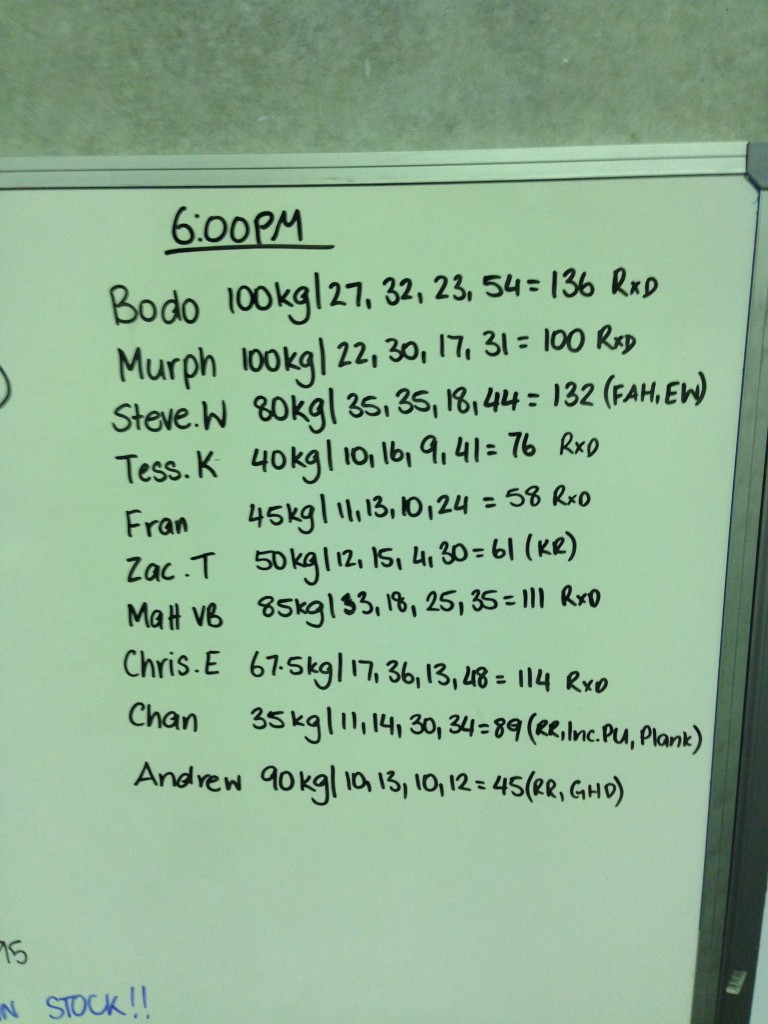 6:00PM
Bodo 100kg | 27, 32, 23, 54 = 136 RxD
Murph 100kg | 22, 30, 17, 31 = 100 RxD
Steve.W 80kg | 35, 35, 18, 44 = 132 (FAH, EW)
Tess.K 40kg | 10, 16, 9, 41 = 76 RxD
Fran 45kg | 11, 13, 10, 24 = 58 RxD
Zac.T 50kg | 12, 15, 4, 30 = 61 (KR)
Matt VB 85kg | 33, 18, 25, 35 = 111 RxD
Chris.E 67.5kg | 17, 36, 13, 48 = 114 RxD
Chan 35kg | 11, 14, 30, 34 = 89 (RR, Inc.PU, Plank)
Andrew 90kg | 10, 13, 10, 12 = 45 (RR, GHD)
STOCK!!